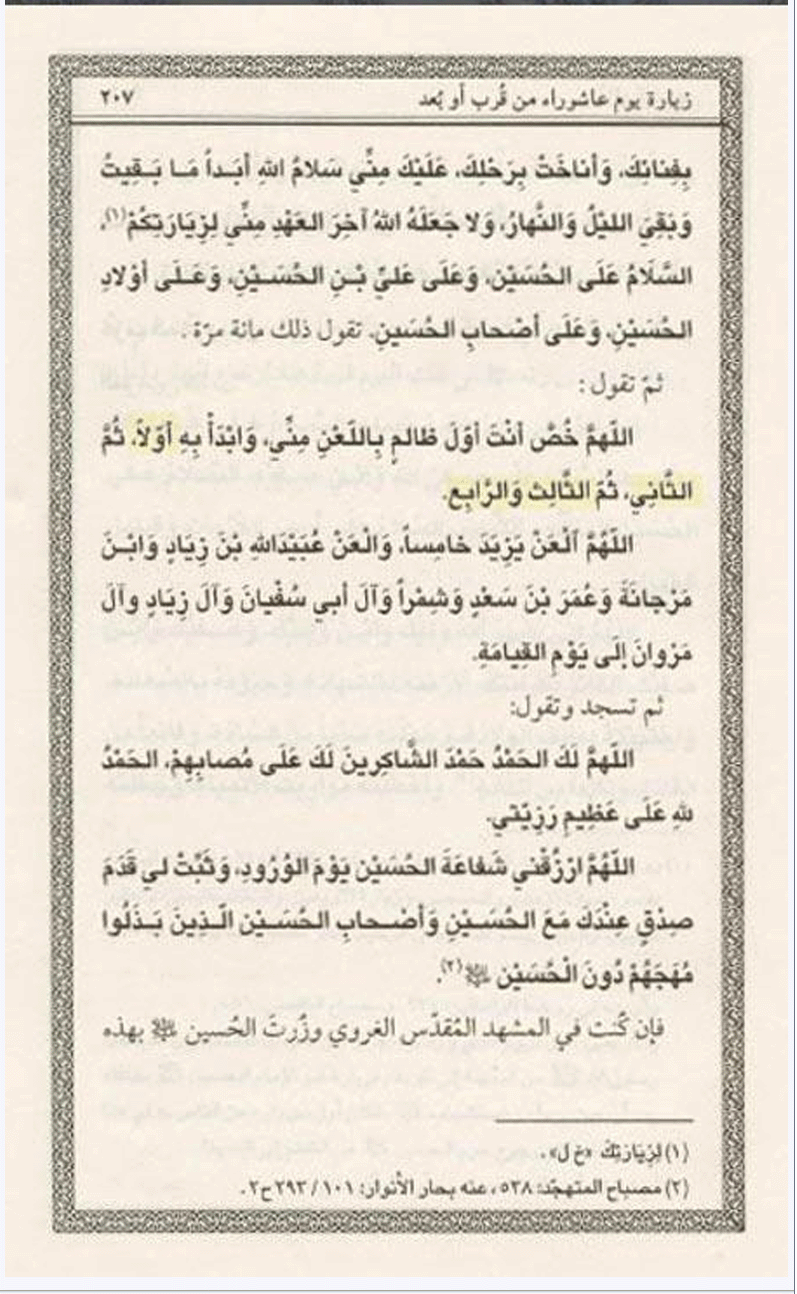 زيارة يوم عاشوراء من قُرب أو بُعد ٢٠٧
بِفِنائِكَ، وَأناخَتْ بِرَحْلِكَ، عَلَيْكَ مِنِّي سَلامُ اللهِ أبَداً مَا بَـقِيتُ
وَبَقِيَ الليْلُ وَالنَّهارُ، وَلا جَعَلَهُ اللهُ آخِرَ العَهْدِ مِنِّي لِزِيَارَتِكُمْ(١)،
السَّلَامُ عَلَى الحُسَيْنِ، وَعَلَى عَليِّ بْنِ الحُسَـيْنِ، وَعَـلَى أوْلادِ
الحُسَيْنِ، وَعَلَى أصْحابِ الحُسَينِ. تقول ذلك مائة مرّة.
ثمّ تقول:
اللّهمَّ خُصَّ أنْتَ أوّلَ ظالمٍ بِاللّعْنِ مِنِّي، وَابْدَأْ بِهِ أوّلاً، ثُمَّ
الثَّانِي، ثُمّ الثَّالِث وَالرَّابِع.
اللّهُمَّ الْعَنْ يَزِيَدَ خامِساً، وَالْعَنْ عُبَيْدَاللهِ بْنَ زِيَادٍ وَابْـنَ
مَرْجانَةَ وَعُمَرَ بْنَ سَعْدٍ وَشمْراً وَآلَ أبي سُفْيانَ وَآلَ زِيَادٍ وآلَ
مَرْوانَ إلَى يَوْمِ القِيامَةِ.
ثم تسجد وتقول:
اللّهُمَّ لَكَ الحَمْدُ حَمْدَ الشَّاكِرِينَ لَكَ عَلَى مُصابِهِمْ، الحَمْدُ
للهِ عَلَى عَظِيمِ رَزِيّتي.
اللّهُمَّ ارْزُقْني شَفاعَةَ الحُسَيْنِ يَوْمَ الوُرُودِ، وَثَبِّتْ لي قَدَمَ
صِدْقٍ عِنْدَكَ مَعَ الحُسَـيْنِ وَأصْـحابِ الحُسَـيْنِ الّـذِينَ بَـذَلُوا
مُهَجَهُمْ دُونَ الْحُسَيْنِ ﷺ(٢).
فإن كُنت في المشهد المُقدّس الغروي وزُرتَ الحُسين ﷺ بهذه
(١) لِزِيَارَتِكَ «خ ل».
(٢) مصباح المتهجّد: ٥٣٨، عنه بحار الأنوار: ١٠١ / ٢٩٣ ح٢.